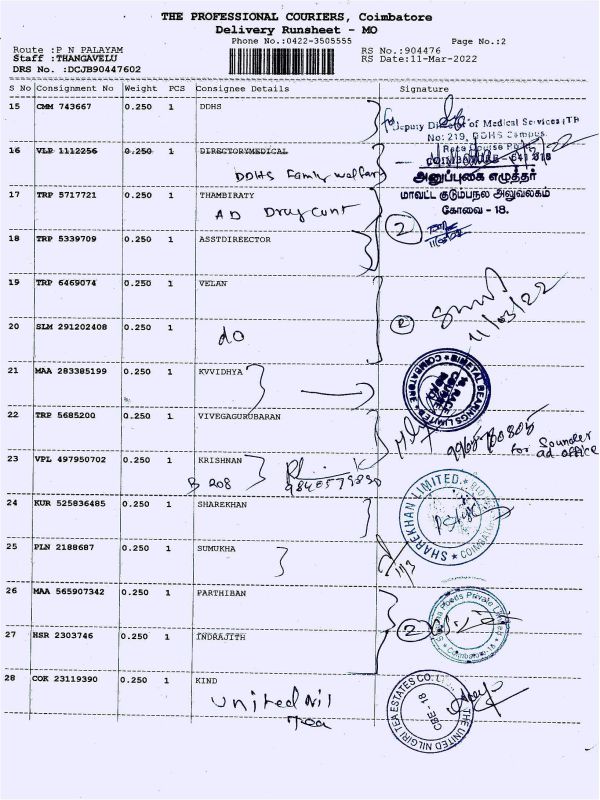 THE PROFESSIONAL COURIERS, Coimbatore
Delivery Runsheet - MO
Phone No.:0422-3505555
Page No.:2
Route :P N PALAYAM
Staff :THANGAVELU
DRS No. :DCJB90447602
RS No.:904476
RS Date:11-Mar-2022
S No Consignment No Weight PCS Consignee Details Signature
15 CMM 743667 0.250 1 DDHS
for Deputy Director of Medical Services (TB
No: 219, DDHS Campus,
Race Course Po
COIMBATORE - 641 018
16 VLP 1112256 0.250 1 DIRECTORYMEDICAL
DDHS Family welfare
அனுப்புகை எழுத்தர்
மாவட்ட குடும்பநல அலுவலகம்
கோவை - 18.
17 TRP 5717721 0.250 1 THAMBIRATY
AD Drug cont
2
18 TRP 5339709 0.250 1 ASSTDIREECTOR
19 TRP 6469074 0.250 1 VELAN
11/03/22
20 SLM 291202408 0.250 1
do
2
21 MAA 283385199 0.250 1 KVVIDHYA
BIMETAL BEARINGS LIMITED
COIMBATORE
22 TRP 5685200 0.250 1 VIVEGAGURUBARAN
for Sounder
ad office
23 VPL 497950702 0.250 1 KRISHNAN
B 208
9840579890
24 KUR 525836485 0.250 1 SHAREKHAN
SHAREKHAN LIMITED
COIMBATORE
25 PLN 2188687 0.250 1 SUMUKHA
11/3
26 MAA 565907342 0.250 1 PARTHIBAN
Foods Private Limited
Coimbatore-18
27 HSR 2303746 0.250 1 INDRAJITH
2
28 COK 23119390 0.250 1 KIND
United Nil
Tea
THE UNITED NILGIRI TEA ESTATES CO. LTD
CBE - 18